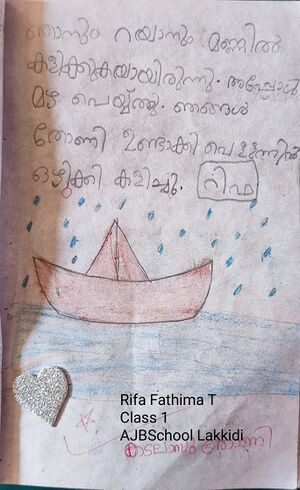 ഞാനും റയാനും മണ്ണിൽ
കളിക്കുകയായിരുന്നു. അപ്പോൾ
മഴ പെയ്തു. ഞങ്ങൾ
തോണി ഉണ്ടാക്കി വെള്ളത്തിൽ
ഒഴുക്കി കളിച്ചു. റിഫ
Rifa Fathima T
Class 1
AJBSchool Lakkidi
കടലാസ് തോണി